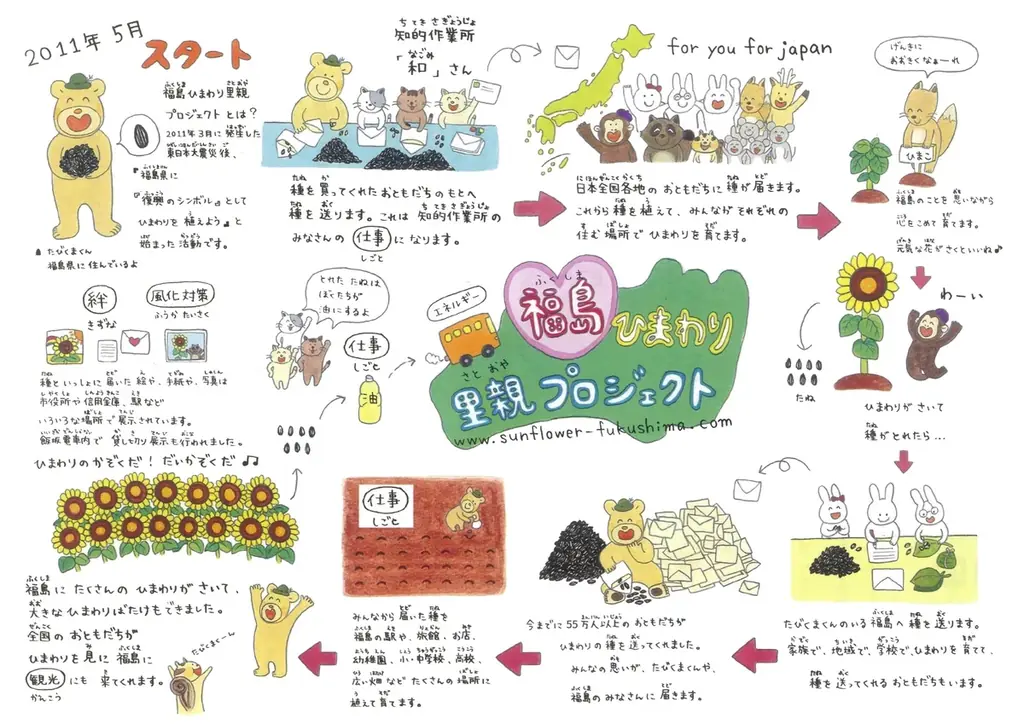 2011年 5月
スタート
福島ひまわり里親
プロジェクトとは？
2011年3月に発生した
東日本大震災後、
『福島県に
『復興のシンボル』として
ひまわりを植えよう』と
始まった活動です。
▲ たびくまくん
福島県に住んでいるよ
知的作業所
「和」さん
種を買ってくれたおともだちのもとへ
種を送ります。これは知的作業所の
みなさんの 仕事 になります。
for you for japan
日本全国各地のおともだちに種が届きます。
これから種を植えて、みんながそれぞれの
住む場所でひまわりを育てます。
げんきに
おおきくなぁーれ
ひまこ
福島のことを思いながら
心をこめて育てます。
元気な花がさくといいね♪
わーい
たね
ひまわりがさいて
種がとれたら…
たびくまくんのいる福島へ種を送ります。
家族で、地域で、学校で、ひまわりを育て、
種を送ってくれるおともだちもいます。
今までに55万人以上のおともだちが
ひまわりの種を送ってくれました。
みんなの思いが、たびくまくんや、
福島のみなさんに届きます。
仕事
しごと
みんなから届いた種を
福島の駅や、旅館、お店、
幼稚園、小・中学校、高校、
広い畑などたくさんの場所に
植えて育てます。
福島にたくさんのひまわりがさいて、
大きなひまわりばたけもできました。
全国のおともだちが
ひまわりを見に福島に
観光 にも来てくれます。
かんこう
たびくまくーん
ひまわりのかぞくだ！だいかぞくだ♫
絆
きずな
風化対策
ふうかたいさく
種といっしょに届いた絵や、手紙や、写真は
市役所や信用金庫、駅など
いろいろな場所で展示されています。
飯坂電車内で貸し切り展示も行われました。
とれたたねは
ぼくたちが
油にするよ
仕事
しごと
油
エネルギー
福島ひまわり
里親プロジェクト
www.sunflower-fukushima.com